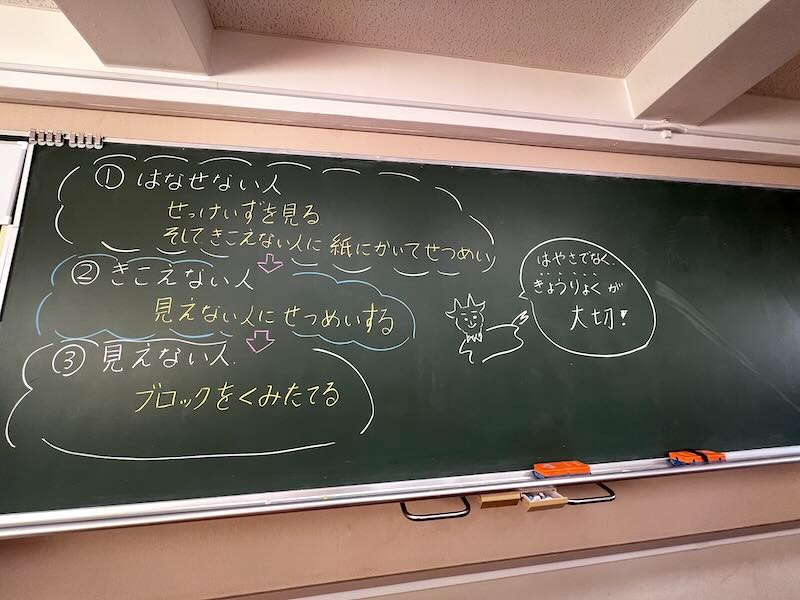 ① はなせない人
せっけいずを見る
そしてきこえない人に 紙にかいてせつめい
② きこえない人
見えない人に せつめいする
③ 見えない人.
ブロックをくみたてる
はやさでなく、
きょうりょくが
大切!